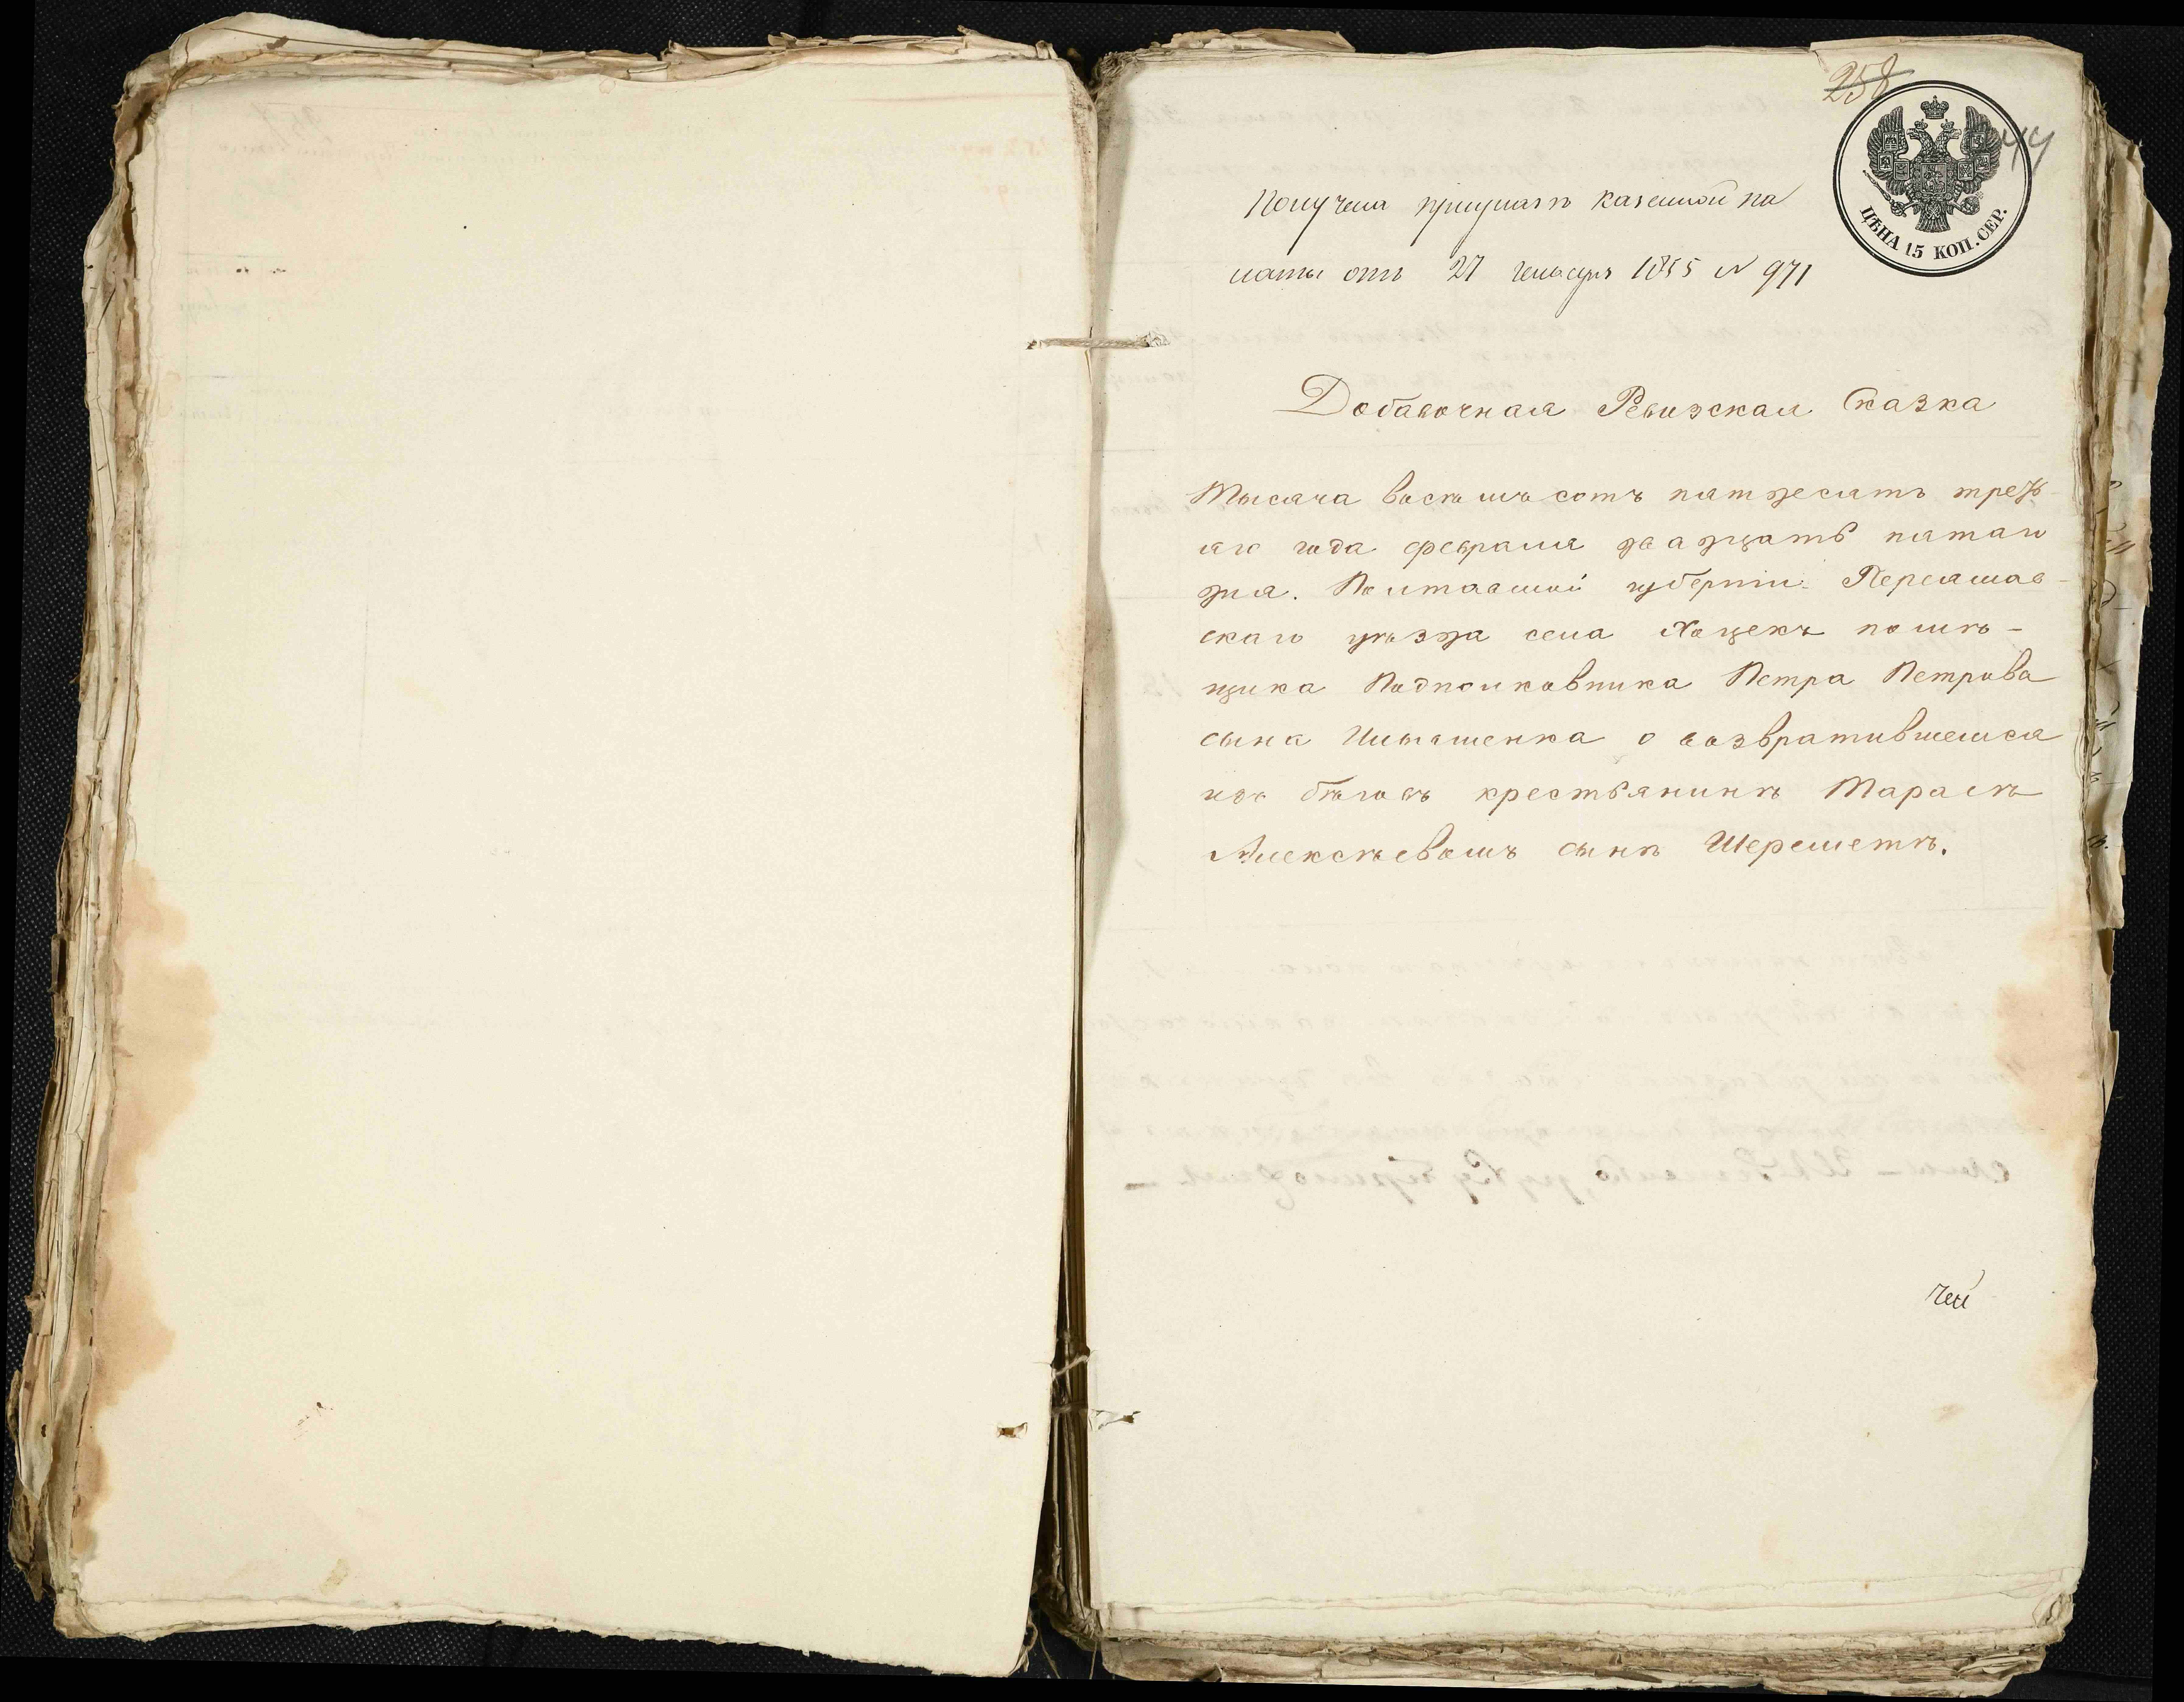 258
44
ЦѢНА 15 КОП. СЕР.
Получена приуказѣ казенной па
латы отъ 27 генваря 1855 N 971
Добавочная Ревизская Сказка
Тысяча восѣмъ сотъ пятдесятъ треть-
яго года февраля двадцать пятаго
дня. Полтавской губерніи Переяслав-
скаго уѣзда села Хоцекъ помѣ-
щика Подполковника Петра Петрова
сына Ильяшенка о возвратившемся
изъ бѣговъ крестьянинѣ Тарасѣ
Алексѣевомъ сынѣ Шерешетѣ.